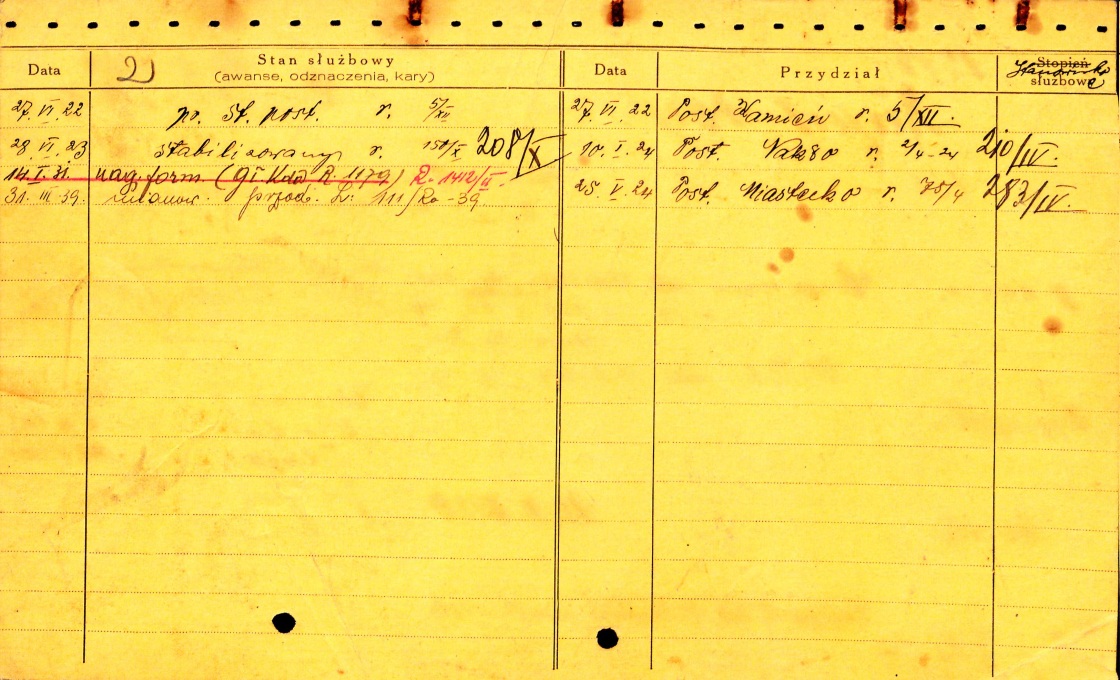 Data
2)
Stan służbowy
(awanse, odznaczenia, kary)
27. VI. 22 po. St. post. r. 5/XII
28. VI. 23 stabilizowany r. 150/X 208/X
14. I. 31. nag. form. R. 1412/II.
31. III. 39. mianow. przod. L: 111/Ro-39
Data
Przydział
Stopień
służbowe
27. VI. 22 Post. Kamień r. 5/XII.
10. I. 24 Post. Nakło r. 2/4-24 210/IV.
25. V. 24 Post. Miasteczko r. 75/4 283/IV.